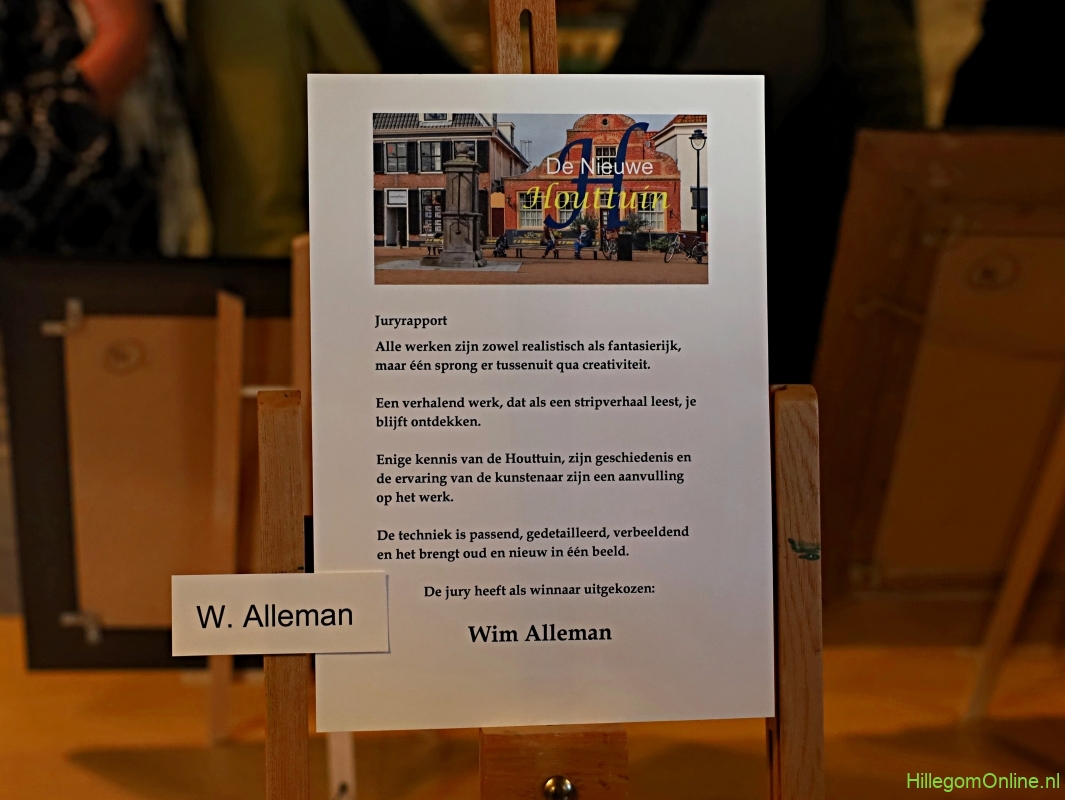 De Nieuwe
Houttuin
H
Juryrapport
Alle werken zijn zowel realistisch als fantasierijk,
maar één sprong er tussenuit qua creativiteit.
Een verhalend werk, dat als een stripverhaal leest, je
blijft ontdekken.
Enige kennis van de Houttuin, zijn geschiedenis en
de ervaring van de kunstenaar zijn een aanvulling
op het werk.
De techniek is passend, gedetailleerd, verbeeldend
en het brengt oud en nieuw in één beeld.
De jury heeft als winnaar uitgekozen:
Wim Alleman
W. Alleman
HillegomOnline.nl